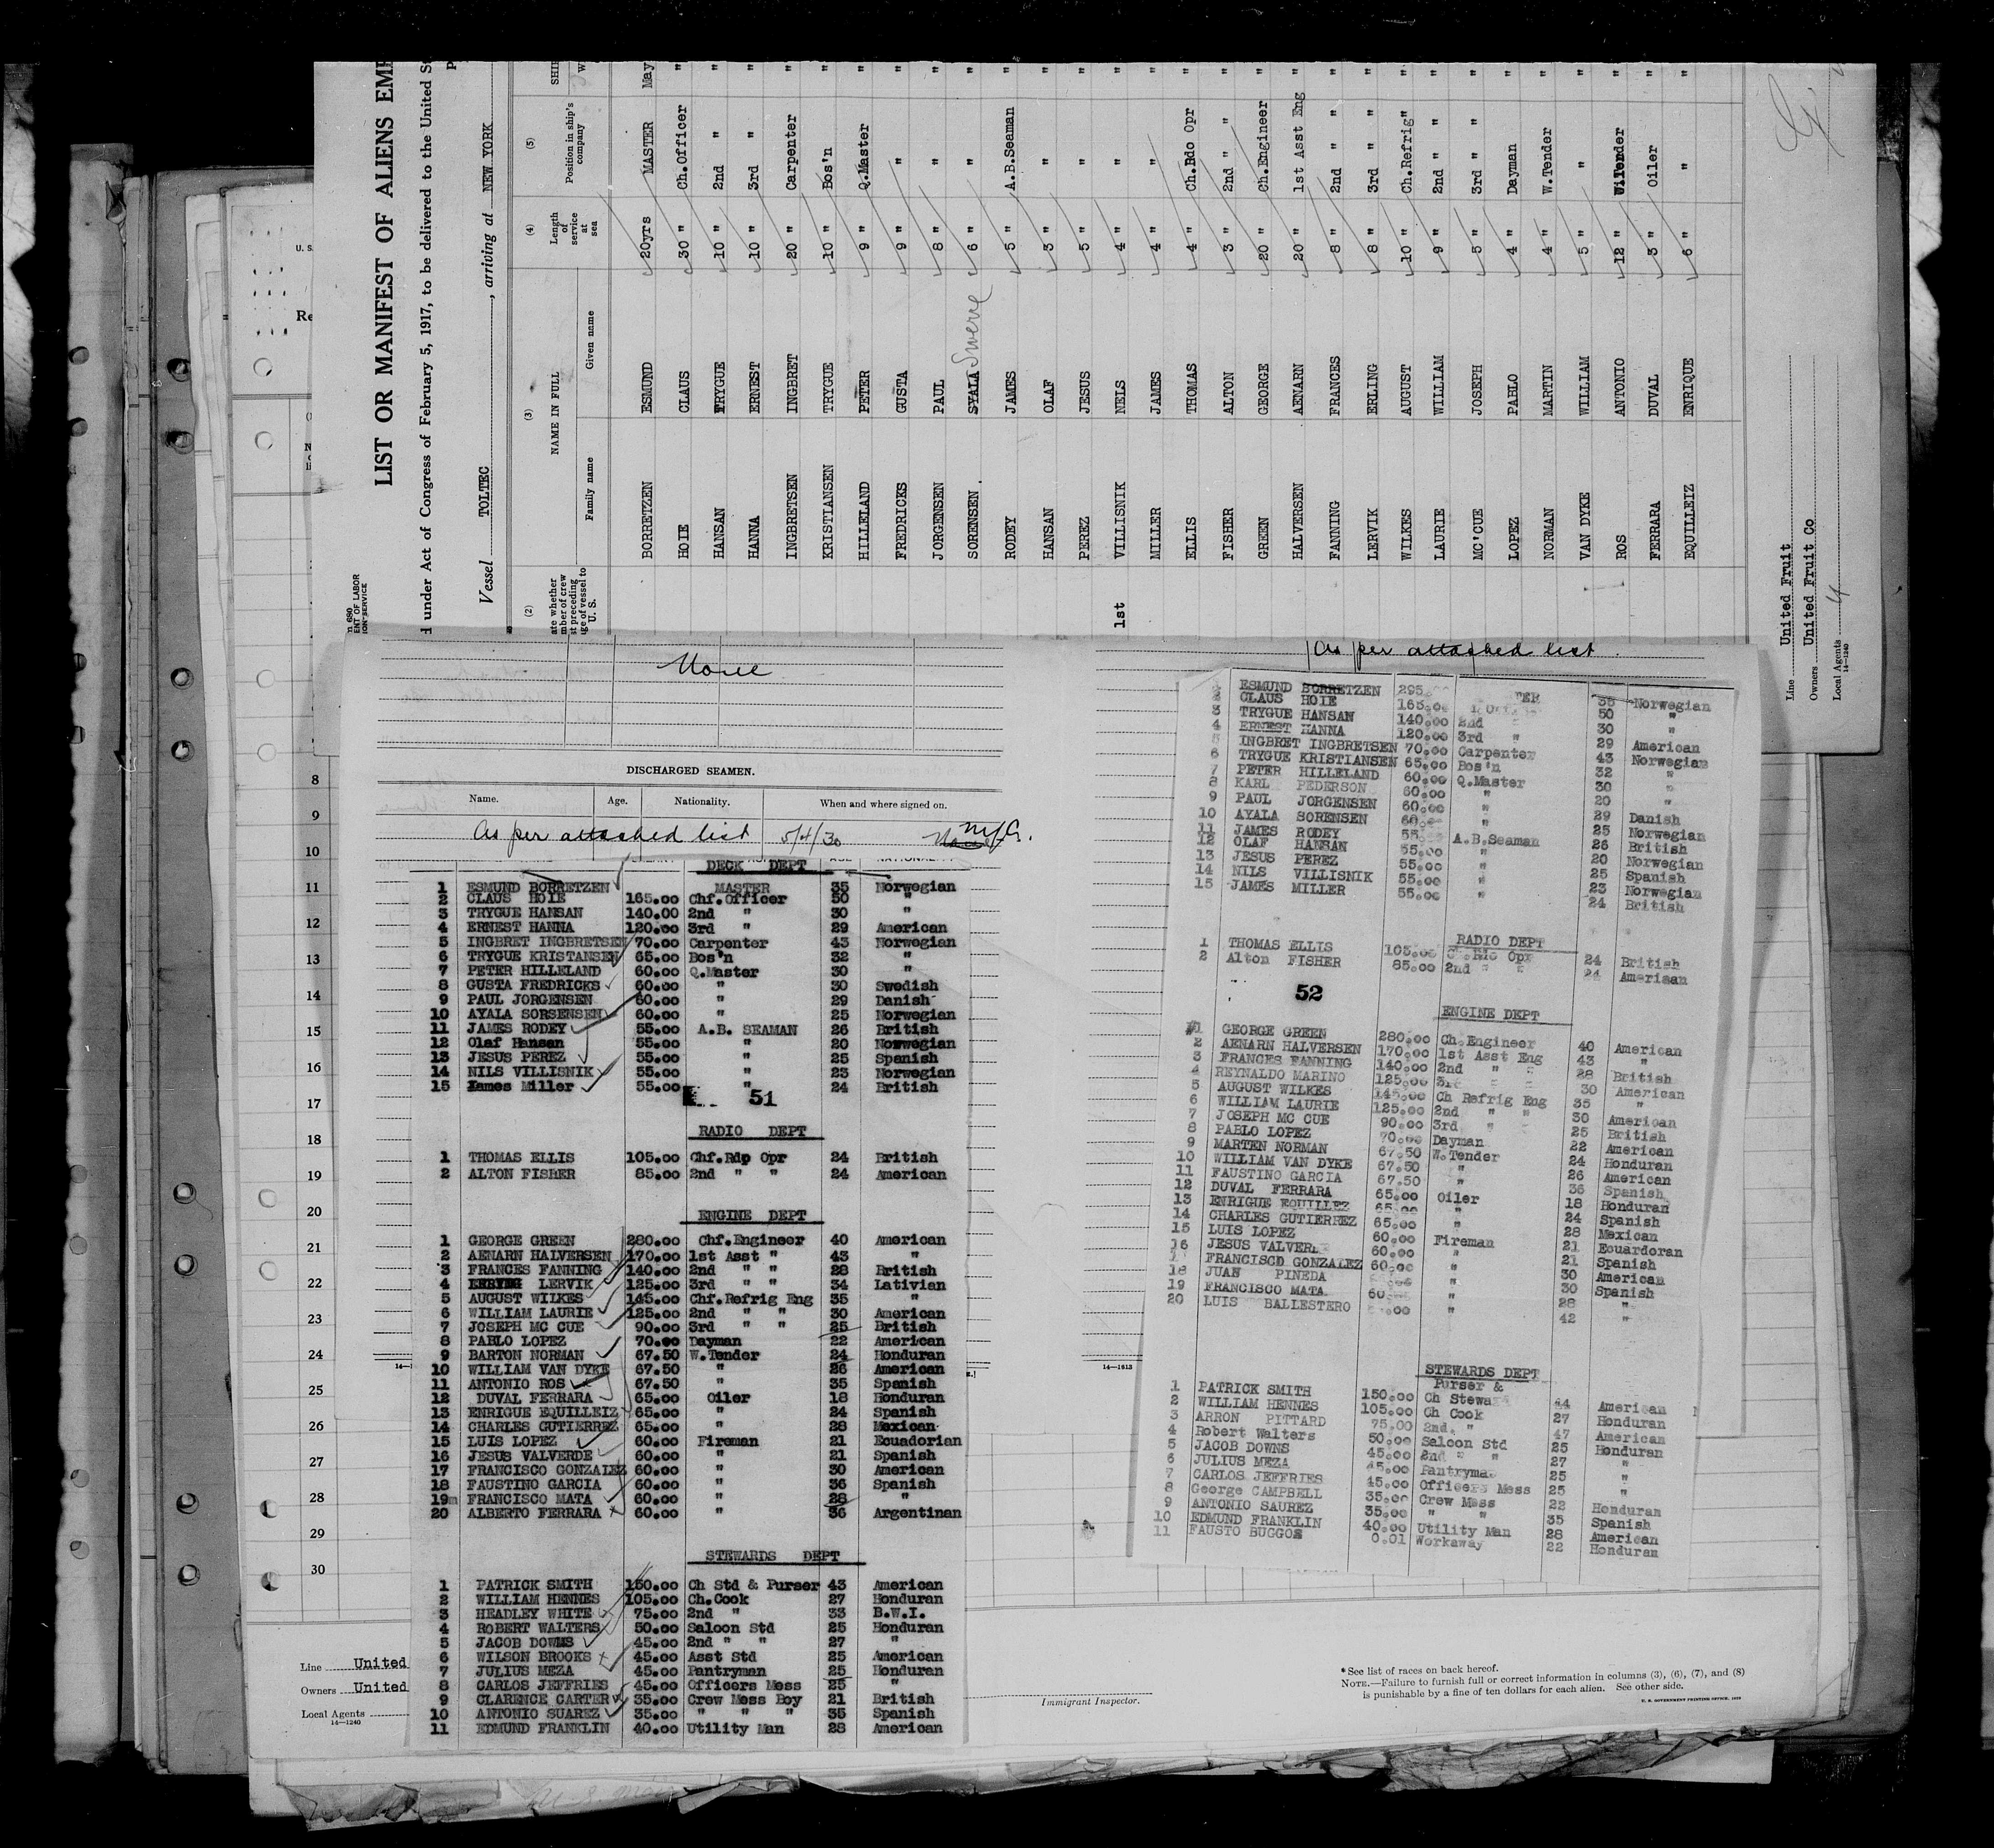 LIST OR MANIFEST OF ALIENS EMP
d under Act of Congress of February 5, 1917, to be delivered to the United St
Vessel TOLTEC, arriving at NEW YORK
(2) (3) (4) (5)
NAME IN FULL Length of service at sea Position in ship's company
Family name Given name
BORRETZEN ESMUND 20yrs MASTER May
HOIE CLAUS 30 " Ch.Officer "
HANSAN TRYGUE 10 " 2nd " "
HANNA ERNEST 10 " 3rd " "
INGBRETSEN INGBRET 20 " Carpenter "
KRISTIANSEN TRYGUE 10 " Bos'n "
HILLELAND PETER 9 " Q.Master "
FREDRICKS GUSTA 9 " " "
JORGENSEN PAUL 8 " " "
SORENSEN. SYALA Swere 6 " " "
RODEY JAMES 5 " A.B.Seaman "
HANSAN OLAF 3 " " "
PEREZ JESUS 5 " " "
1st VILLISNIK NELS 4 " " "
MILLER JAMES 4 " " "
ELLIS THOMAS 4 " Ch.Rdo Opr "
FISHER ALTON 3 " 2nd " " "
GREEN GEORGE 20 " Ch.Engineer "
HALVERSEN AENARN 20 " 1st Asst Eng "
FANNING FRANCES 8 " 2nd " " "
LERVIK ERLING 8 " 3rd " " "
WILKES AUGUST 10 " Ch.Refrig" "
LAURIE WILLIAM 9 " 2nd " " "
MC'CUE JOSEPH 5 " 3rd " "
LOPEZ PABLO 4 " Dayman "
NORMAN MARTIN 4 " W.Tender "
VAN DYKE WILLIAM 5 " " "
ROS ANTONIO 12 " "
FERRARA DUVAL 3 " Oiler "
EQUILLEIZ ENRIQUE 6 " " "
Line United Fruit
Owners United Fruit Co
Local Agents
14-1240
None
DISCHARGED SEAMEN.
Name. Age. Nationality. When and where signed on.
As per attached list 5/4/30
DECK DEPT
1 ESMUND BORRETZEN MASTER 35 Norwegian
2 CLAUS HOIE 165.00 Chf.Officer 50 "
3 TRYGUE HANSAN 140.00 2nd " 30 "
4 ERNEST HANNA 120.00 3rd " 29 American
5 INGBRET INGBRETSEN 70.00 Carpenter 43 Norwegian
6 TRYGUE KRISTANSEN 65.00 Bos'n 32 "
7 PETER HILLELAND 60.00 Q.Master 30 "
8 GUSTA FREDRICKS 60.00 " 30 Swedish
9 PAUL JORGENSEN 60.00 " 29 Danish
10 AYALA SORSENSEN 60.00 " 25 Norwegian
11 JAMES RODEY 55.00 A.B. SEAMAN 26 British
12 Olaf Hansan 55.00 " 20 Norwegian
13 JESUS PEREZ 55.00 " 25 Spanish
14 NILS VILLISNIK 55.00 " 23 Norwegian
15 James Miller 55.00 " 24 British
51
RADIO DEPT
1 THOMAS ELLIS 105.00 Chf.Rdp Opr 24 British
2 ALTON FISHER 85.00 2nd " " 24 American
ENGINE DEPT
1 GEORGE GREEN 280.00 Chf.Engineer 40 American
2 AENARN HALVERSEN 170.00 1st Asst " 43 "
3 FRANCES FANNING 140.00 2nd " " 28 British
4 LERVIK 125.00 3rd " " 34 Lativian
5 AUGUST WILKES 145.00 Chf.Refrig Eng 35 "
6 WILLIAM LAURIE 125.00 2nd " " 30 American
7 JOSEPH MC CUE 90.00 3rd " " 25 British
8 PABLO LOPEZ 70.00 Dayman 22 American
9 BARTON NORMAN 67.50 W.Tender 24 Honduran
10 WILLIAM VAN DYKE 67.50 " 26 American
11 ANTONIO ROS 67.50 " 35 Spanish
12 DUVAL FERRARA 65.00 Oiler 18 Honduran
13 ENRIGUE EQUILLEIZ 65.00 " 24 Spanish
14 CHARLES GUTIERREZ 65.00 " 28 Mexican
15 LUIS LOPEZ 60.00 Fireman 21 Ecuadorian
16 JESUS VALVERDE 60.00 " 21 Spanish
17 FRANCISCO GONZALEZ 60.00 " 30 American
18 FAUSTINO GARCIA 60.00 " 36 Spanish
19 FRANCISCO MATA 60.00 " 28 "
20 ALBERTO FERRARA 60.00 " 36 Argentinan
STEWARDS DEPT
1 PATRICK SMITH 150.00 Ch Std & Purser 43 American
2 WILLIAM HENNES 105.00 Ch.Cook 27 Honduran
3 HEADLEY WHITE 75.00 2nd " 33 B.W.I.
4 ROBERT WALTERS 50.00 Saloon Std 25 Honduran
5 JACOB DOWNS 45.00 2nd " " 27 "
6 WILSON BROOKS 45.00 Asst Std 25 American
7 JULIUS MEZA 45.00 Pantryman 25 Honduran
8 CARLOS JEFFRIES 45.00 Officers Mess 25 "
9 CLARENCE CARTER 35.00 Crew Mess Boy 21 British
10 ANTONIO SUAREZ 35.00 " " " 35 Spanish
11 EDMUND FRANKLIN 40.00 Utility Man 28 American
As per attached list.
ESMUND BORRETZEN 295. 35 Norwegian
2 CLAUS HOIE 165.00 50 "
3 TRYGUE HANSAN 140.00 2nd " 30 "
4 ERNEST HANNA 120.00 3rd " 29 American
5 INGBRET INGBRETSEN 70.00 Carpenter 43 Norwegian
6 TRYGUE KRISTIANSEN 65.00 Bos'n 32 "
7 PETER HILLELAND 60.00 Q.Master 30 "
8 KARL PEDERSON 60.00 " 20 "
9 PAUL JORGENSEN 60.00 " 29 Danish
10 AYALA SORENSEN 60.00 " 25 Norwegian
11 JAMES RODEY 55. A.B.Seaman 26 British
12 OLAF HANSAN 55.00 " 20 Norwegian
13 JESUS PEREZ 55.00 " 25 Spanish
14 NILS VILLISNIK 55.00 " 23 Norwegian
15 JAMES MILLER 55.00 " 24 British
RADIO DEPT
1 THOMAS ELLIS 105.00 Ch.Rdo Opr 24 British
2 Alton FISHER 85.00 2nd " " 24 American
52
ENGINE DEPT
1 GEORGE GREEN 280.00 Ch.Engineer 40 American
2 AENARN HALVERSEN 170.00 1st Asst Eng 43 "
3 FRANCES FANNING 140.00 2nd " " 28 British
4 REYNALDO MARINO 125.00 3r " " 30 American
5 AUGUST WILKES 145.00 Ch Refrig Eng 35 "
6 WILLIAM LAURIE 125.00 2nd " " 30 American
7 JOSEPH MC CUE 90.00 3rd " " 25 British
8 PABLO LOPEZ 70.00 Dayman 22 American
9 MARTEN NORMAN 67.50 W.Tender 24 Honduran
10 WILLIAM VAN DYKE 67.50 " 26 American
11 FAUSTINO GARCIA 67.50 " 36 Spanish
12 DUVAL FERRARA 65.00 Oiler 18 Honduran
13 ENRIGUE EQUILLEZ 65.00 " 24 Spanish
14 CHARLES GUTIERREZ 65.00 " 28 Mexican
15 LUIS LOPEZ 60.00 Fireman 21 Ecuardoran
16 JESUS VALVER 60.00 " 21 Spanish
FRANCISCO GONZALEZ 60.00 " 30 American
18 JUAN PINEDA " 30 Spanish
19 FRANCISCO MATA 60 " 28 "
20 LUIS BALLESTERO .00 " 42 "
STEWARDS DEPT
Purser &
1 PATRICK SMITH 150.00 Ch Stewa 44 American
2 WILLIAM HENNES 105.00 Ch Cook 27 Honduran
3 ARRON PITTARD 75.00 2nd. " 47 American
4 Robert Walters 50.00 Saloon Std 25 Honduran
5 JACOB DOWNS 45.00 2nd " " 27 "
6 JULIUS MEZA 45.00 Pantryma 25 "
7 CARLOS JEFFRIES 45.00 Officers Mess 25 "
8 George CAMPBELL 35.00 Crew Mess 22 Honduran
9 ANTONIO SAUREZ 35.00 " " 35 Spanish
10 EDMUND FRANKLIN 40.00 Utility Man 28 American
11 FAUSTO BUGGOS 0.01 Workaway 22 Honduran
14-1613
8
9
10
11
12
13
14
15
16
17
18
19
20
21
22
23
24
25
26
27
28
29
30
Line United
Owners United
Local Agents
14-1240
Immigrant Inspector.
*See list of races on back hereof.
NOTE.—Failure to furnish full or correct information in columns (3), (6), (7), and (8)
is punishable by a fine of ten dollars for each alien. See other side.